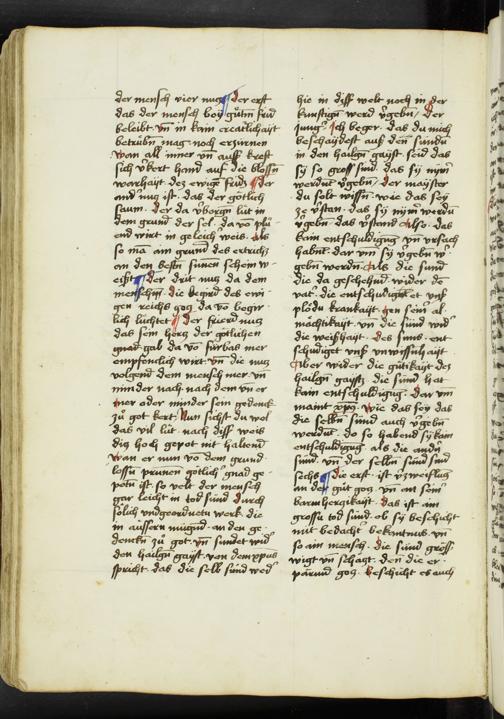 der mensch vier nucz der erst
das der mensch bey gutem frid
beleibt vn in kain creatlichait
betrubn mag noch erzurnen
wan all inner vn auss kreft
sich kert hand auff die blossn
warhait dez ewige fridz der
and nucz ist das der gotlich
saum der da verborgn lit in
dem grund der sel da vo
end wirt in geleich weis als
so ma am grund des ertrichs
an den bestn sinnen schein
der drit nucz da dem
menschn die begird des ewi
gen reichs gocz da vo beger
lich luchtet der fierd nucz
das dem hercz der gotlichen
gnad gab da vo furbas mer
empfenclich wirt vn die nucz
volgend dem mensch mer vn
minder nach nach dem vn er
mer oder minder sein gedenck
zu got kert Nun sicht du wol
das vil lut nach diss weis
dig hoch gepot nit haltend
wan er nun vo dem grund
blossn prunen gotlich gnad ge
so velt der mensch
gar leicht in tod sund durch
solich ungeordnetu werk die
in aussern mugnd an den ge
denckn zu got vn sundet wid
den hailgn gayst von dem xpus
spricht das die selb sund wed
hie in diss welt noch in der
kunftign werd vgebn der
jung Ich beger das du mich
beschaydest auss den sundn
in den hailgn gayst seid das
sy so gross sind das sy nym
werdnt vgebn der mayster
du solt wissn wie das sey
ze vstan das sy nym werdn
vgebn das vstand also das
kain entschuldigug vn ursach
habnt dar um sy vgebn
gebn werdn als die sund
die da geschehnd wider de
vat die entschuldiget uns
plodu krankait gen sein al
machtikait vn die sund wid
die weisshait des suns ent
schudiget uns unwissnhait
Aber wider die gutikait dez
hailgn gaysts die sund hat
kain entschuldigug dar um
maint xpus wie das sey das
die selbn sund auch vgebn
werdnt do so habend sy kain
entschuldigug als die andn
sund vn der selbn sund sind
sechs die erst ist verzweiflug
an der gut gocz vn an sein
barmhercigkait das ist am
grossu tod sund ob sy beschicht
mit bedacht bekantnus vn
so ain mensch die sund gross
wigt vn schaczt den die er
parmd gocz beschicht es auch